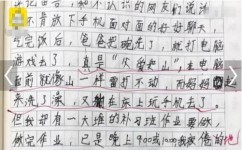 和不认识的网友们说话
不肯放下手机面对面的好好聊天,
吃完饭后,爸爸把碗洗了,就打电脑
游戏去了,真是"不管
前就像山一样雷打不动,而妈妈
来洗了澡,又躺在床上玩手机去了。
但我却有一大堆的补习班作业要做
做完作业,已是晚上9:00或10:00